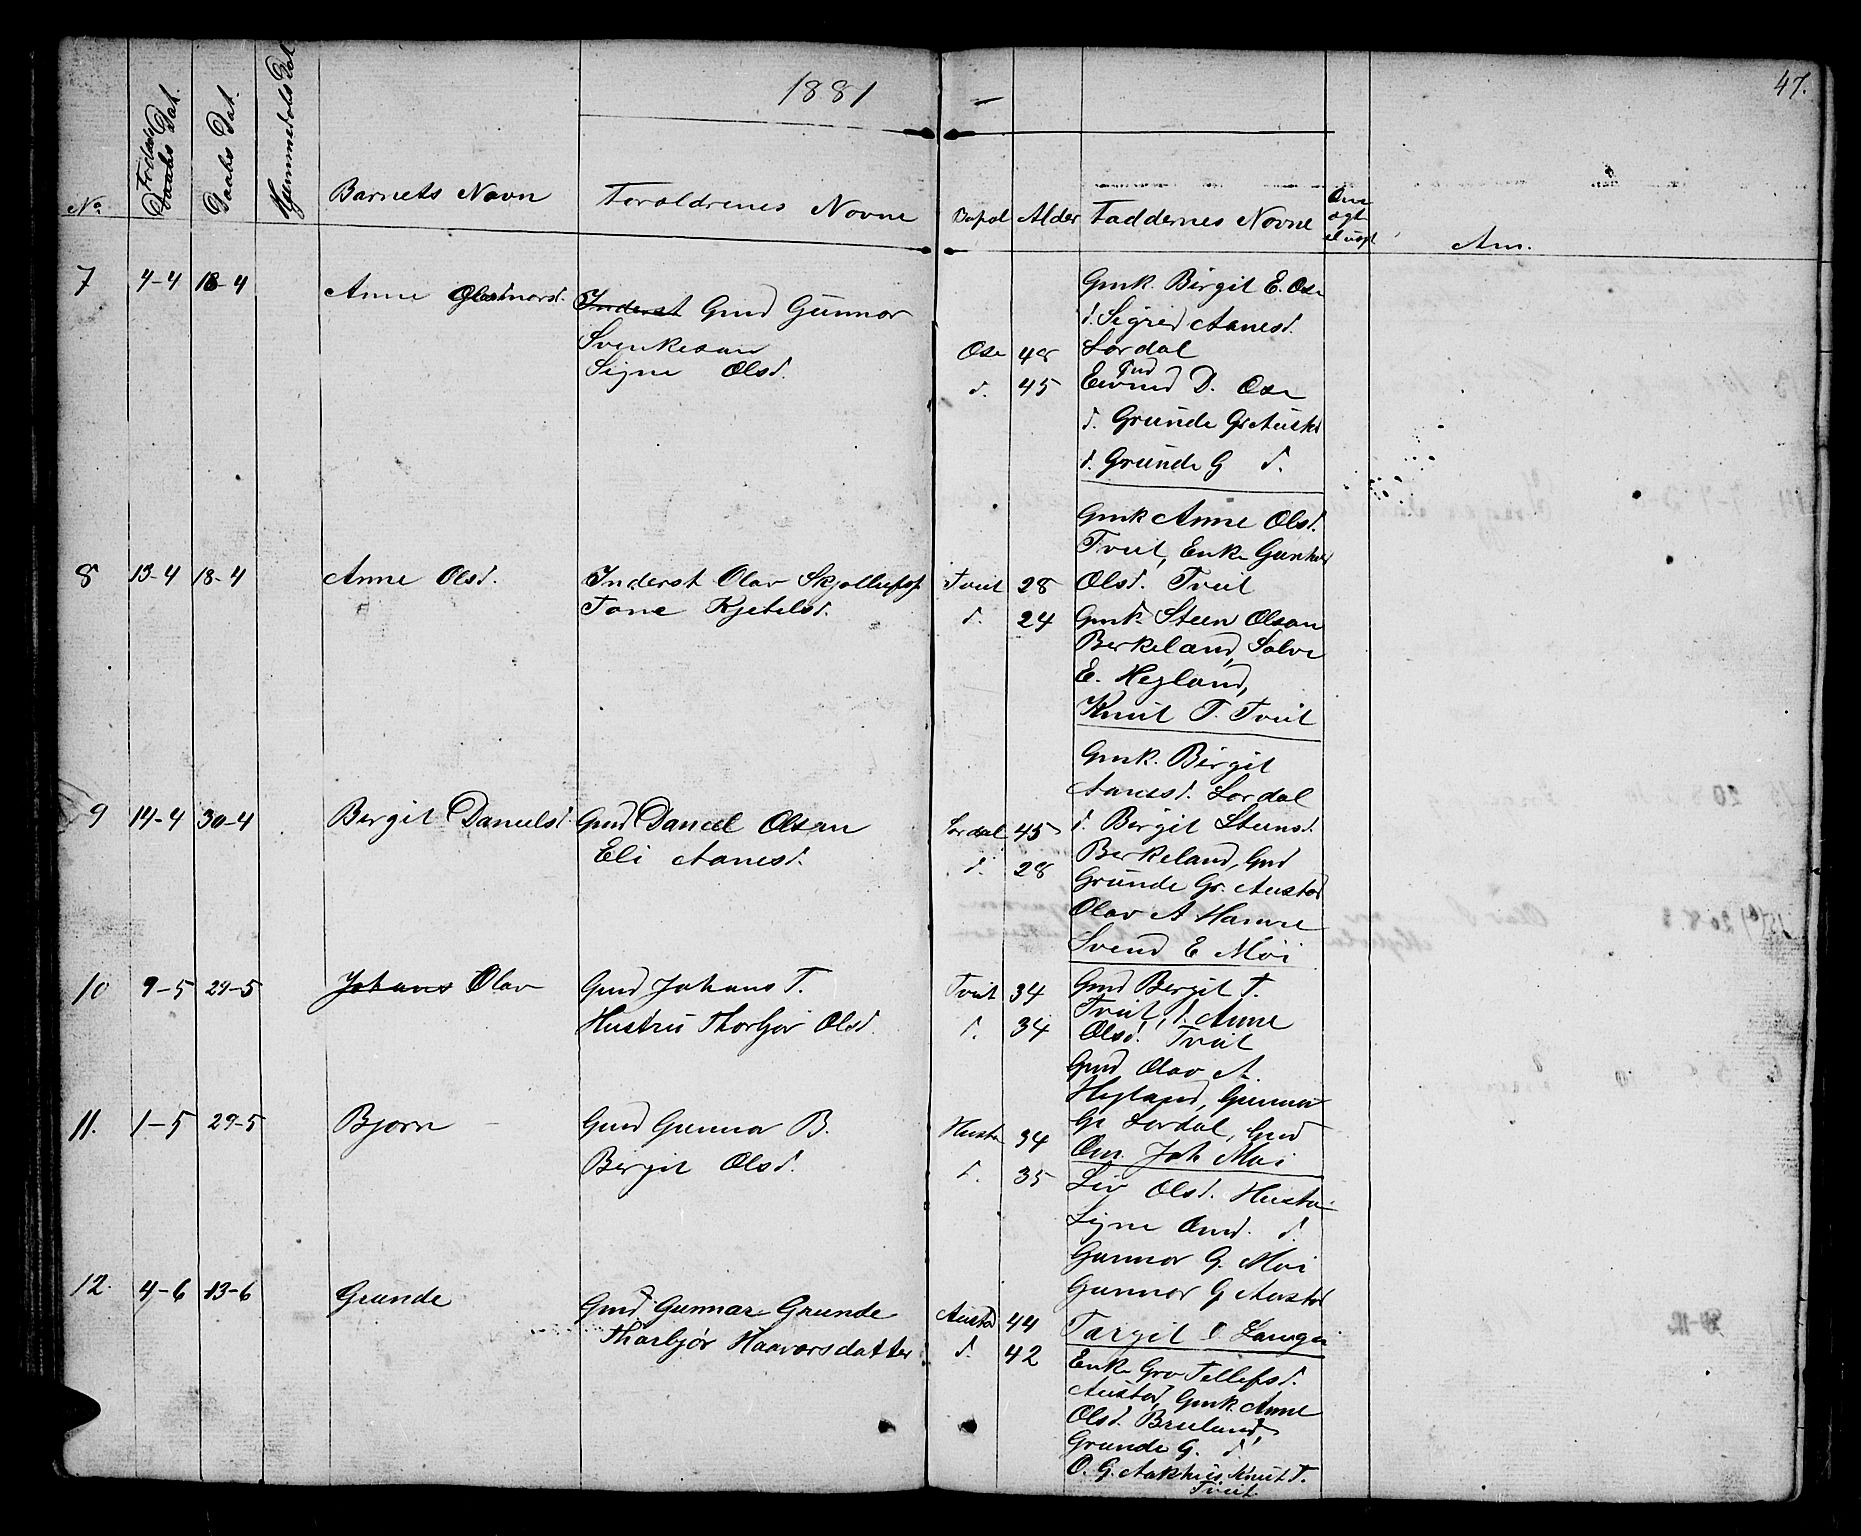 1881
47.
No
Fødsels Dat.
Daabs Dat.
Hjemmedøbs Dat.
Barnets Navn
Forældrenes Navne
Bopæl
Alder
Faddernes Navne
Om
ægt
el uægt
Anm.
7 4-4 18-4 Anne Gunnarsd. Inderst Gmd Gunnar
Svenkesøn
Signe Olsd.
Ose 48
d. 45
Gmk. Birgit E. Ose
d. Sigrid Aanesd.
Lordal
Gmd
Eivind D. Ose
d. Grunde Gr Austad
d. Grunde G d.
8 13-4 18-4 Anne Olsd. Inderst Olav Skjollufsf
Tone Kjetelsd.
Tveit 28
d. 24
Gmk Anne Olsd.
Tveit, Enke Gunhild
Olsd. Tveit
Gmk Steen Olsøn
Berkeland, Salve
E. Hegland,
Knut T. Tveit
9 14-4 30-4 Bergit Danielsd. Gmd Daniel Olsøn
Eli Aanesd.
Lordal 45
d. 28
Gmk. Birgit
Aanesd. Lordal
d. Birgit Steensd.
Berkeland, Gmd
Grunde Gr. Austad
Olav A Hamre
Svend E Moi
10 9-5 29-5 Johans Olav Gmd Johans T.
Hustru Thorbjør Olsd.
Tveit 34
d. 34
Gmd Bergit T.
Tveit, d. Anne
Olsd. Tveit
Gmd Olav A.
Hegland, Gunnar
Gr Lordal, Gmd
Om. Joh Moi
11. 1-5 29-5 Bjorn Gmd Gunnar B.
Birgit Olsd.
Husta 34
d. 35
Liv Olsd. Husta
Signe Omd. d.
Gunnar G. Moi
Gunnar G Austad
Targit O Langei
12. 4-6 13-6 Grunde Gmd Gunnar Grunde
Thorbjør Haavorsdatter
Austad 44
d. 42
Enke Gro Tellefsd.
Austad, Gmk Anne
Olsd. Breland,
Grunde G. d
O. G. Aakhus, Knut T.
Tveit.